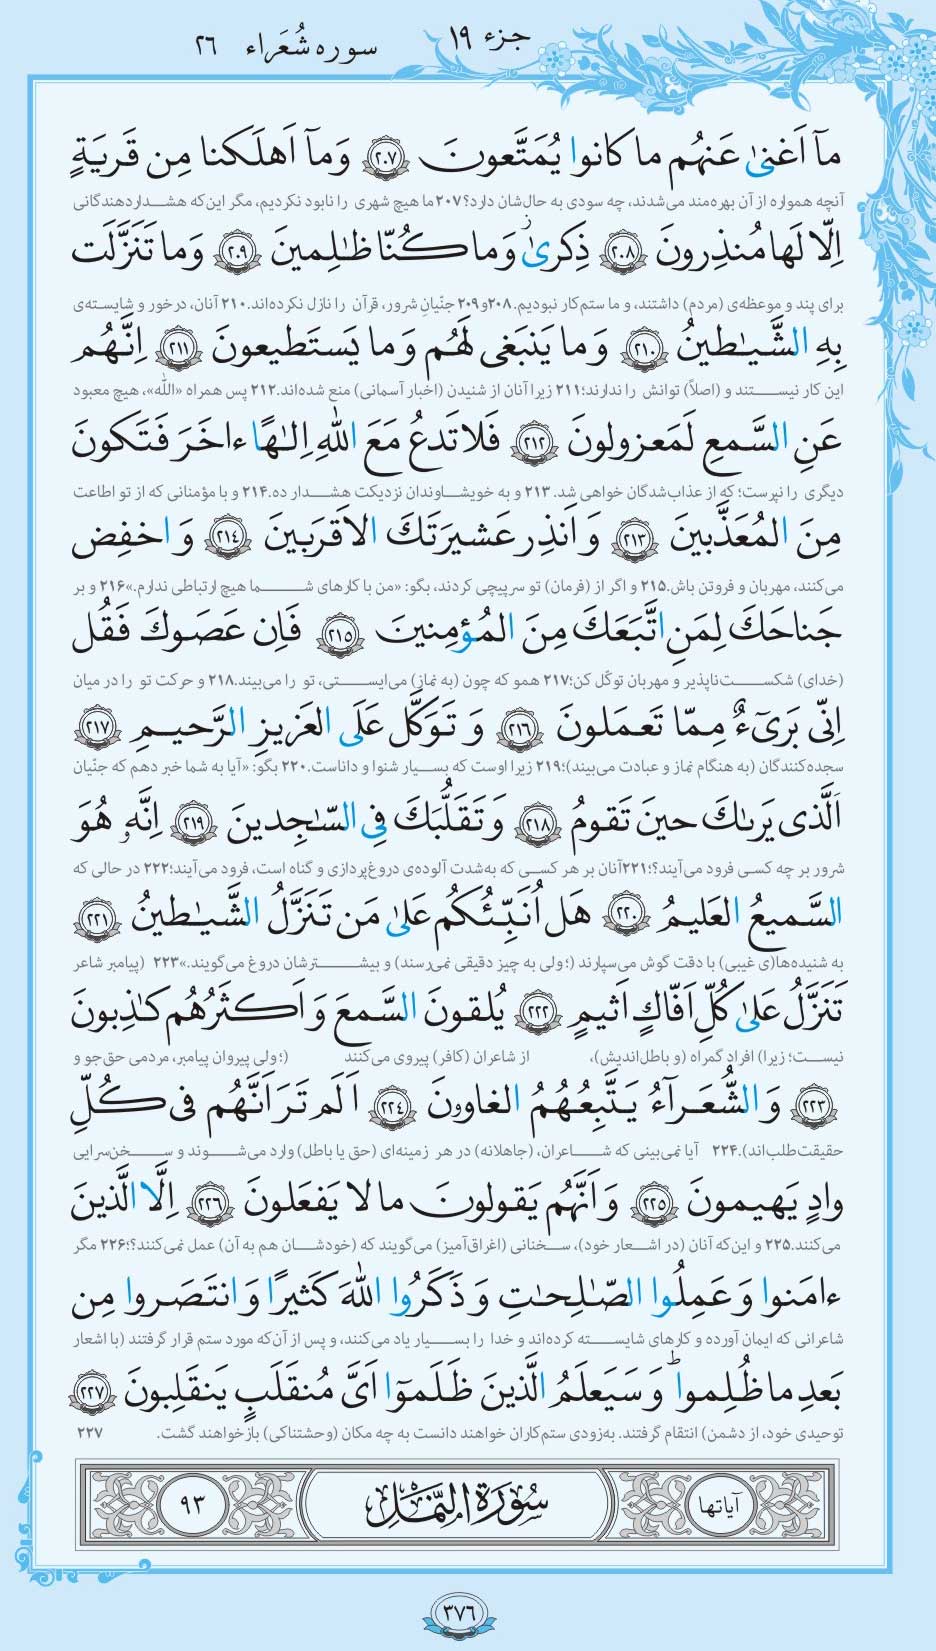 جزء ۱۹ سوره شُعَراء ۲۶
مآ اَغنىٰ عَنهُم ما كانوا يُمَتَّعونَ ۲۰۷ وَ مآ اَهلَكنا مِن قَريَةٍ
آنچه همواره از آن بهره‌مند می‌شدند، چه سودی به حال‌شان دارد؟۲۰۷ ما هیچ شهری را نابود نکردیم، مگر این‌که هشداردهندگانی
اِلّا لَها مُنذِرونَ ۲۰۸ ذِكرىٰ وَ ما كُنّا ظٰلِمينَ ۲۰۹ وَ ما تَنَزَّلَت
برای پند و موعظه‌ی (مردم) داشتند، و ما ستم‌کار نبودیم.۲۰۸و۲۰۹ جنّیانِ شرور، قرآن را نازل نکرده‌اند.۲۱۰ آنان، درخور و شایسته‌ی
بِهِ الشَّيٰطينُ ۲۱۰ وَ ما يَنبَغى لَهُم وَ ما يَستَطيعونَ ۲۱۱ اِنَّهُم
این کار نیستند و (اصلاً) توانش را ندارند؛۲۱۱ زیرا آنان از شنیدن (اخبار آسمانی) منع شده‌اند.۲۱۲ پس همراه «اللّٰه»، هیچ معبود
عَنِ السَّمعِ لَمَعزولونَ ۲۱۲ فَلا تَدعُ مَعَ اللّٰهِ اِلٰهًا ءاخَرَ فَتَكونَ
دیگری را نپرست؛ که از عذاب‌شدگان خواهی شد. ۲۱۳ و به خویشاوندان نزدیکت هشدار ده.۲۱۴ و با مؤمنانی که از تو اطاعت
مِنَ المُعَذَّبينَ ۲۱۳ وَ اَنذِر عَشيرَتَكَ الاَقرَبينَ ۲۱۴ وَ اخفِض
می‌کنند، مهربان و فروتن باش.۲۱۵ و اگر از (فرمان) تو سرپیچی کردند، بگو: «من با کارهای شما هیچ ارتباطی ندارم.»۲۱۶ و بر
جَناحَكَ لِمَنِ اتَّبَعَكَ مِنَ المُؤمِنينَ ۲۱۵ فَاِن عَصَوكَ فَقُل
(خدای) شکست‌ناپذیر و مهربان توکّل کن؛۲۱۷ همو که چون (به نماز) می‌ایستی، تو را می‌بیند.۲۱۸ و حرکت تو را در میان
اِنّى بَرىٓءٌ مِمّا تَعمَلونَ ۲۱۶ وَ تَوَكَّل عَلَى العَزيزِ الرَّحيمِ ۲۱۷
سجده‌کنندگان (به هنگام نماز و عبادت می‌بیند)؛۲۱۹ زیرا اوست که بسیار شنوا و داناست.۲۲۰ بگو: «آیا به شما خبر دهم که جنّیان
اَلَّذى يَرىٰكَ حينَ تَقومُ ۲۱۸ وَ تَقَلُّبَكَ فِى السّاجِدينَ ۲۱۹ اِنَّهٗ هُوَ
شرور بر چه کسی فرود می‌آیند؟!۲۲۱ آنان بر هر کسی که به‌شدت آلوده‌ی دروغ‌پردازی و گناه است، فرود می‌آیند؛۲۲۲ در حالی که
السَّميعُ العَليمُ ۲۲۰ هَل اُنَبِّئُكُم عَلىٰ مَن تَنَزَّلُ الشَّيٰطينُ ۲۲۱
به شنیده‌ها(ی غیبی) با دقت گوش می‌سپارند (؛ولی به چیز دقیقی نمی‌رسند) و بیشترشان دروغ می‌گویند.»۲۲۳ (پیامبر شاعر
تَنَزَّلُ عَلىٰ كُلِّ اَفّاكٍ اَثيمٍ ۲۲۲ يُلقونَ السَّمعَ وَ اَكثَرُهُم كٰذِبونَ
نیست؛ زیرا) افرادِ گمراه (و باطل‌اندیش)، از شاعران (کافر) پیروی می‌کنند (؛ولی پیروان پیامبر، مردمی حق‌جو و
۲۲۳ وَ الشُّعَرآءُ يَتَّبِعُهُمُ الغاوونَ ۲۲۴ اَلَم تَرَ اَنَّهُم فى كُلِّ
حقیقت‌طلب‌اند).۲۲۴ آیا نمی‌بینی که شاعران، (جاهلانه) در هر زمینه‌ای (حق یا باطل) وارد می‌شوند و سخن‌سرایی
وادٍ يَهيمونَ ۲۲۵ وَ اَنَّهُم يَقولونَ ما لا يَفعَلونَ ۲۲۶ اِلَّا الَّذينَ
می‌کنند.۲۲۵ و این‌که آنان (در اشعار خود)، سخنانی (اغراق‌آمیز) می‌گویند که (خودشان هم به آن) عمل نمی‌کنند؟؛۲۲۶ مگر
ءامَنوا وَ عَمِلُوا الصّٰلِحٰتِ وَ ذَكَرُوا اللّٰهَ كَثيرًا وَ انتَصَروا مِن
شاعرانی که ایمان آورده و کارهای شایسته کرده‌اند و خدا را بسیار یاد می‌کنند، و پس از آن‌که مورد ستم قرار گرفتند (با اشعار
بَعدِ ما ظُلِموا ط وَ سَيَعلَمُ الَّذينَ ظَلَموٓا اَىَّ مُنقَلَبٍ يَنقَلِبونَ ۲۲۷
توحیدی خود، از دشمن) انتقام گرفتند. به‌زودی ستم‌کاران خواهند دانست به چه مکان (وحشتناکی) بازخواهند گشت. ۲۲۷
آیاتها سُورَةُ النَّمْلِ ۹۳
۳۷۶